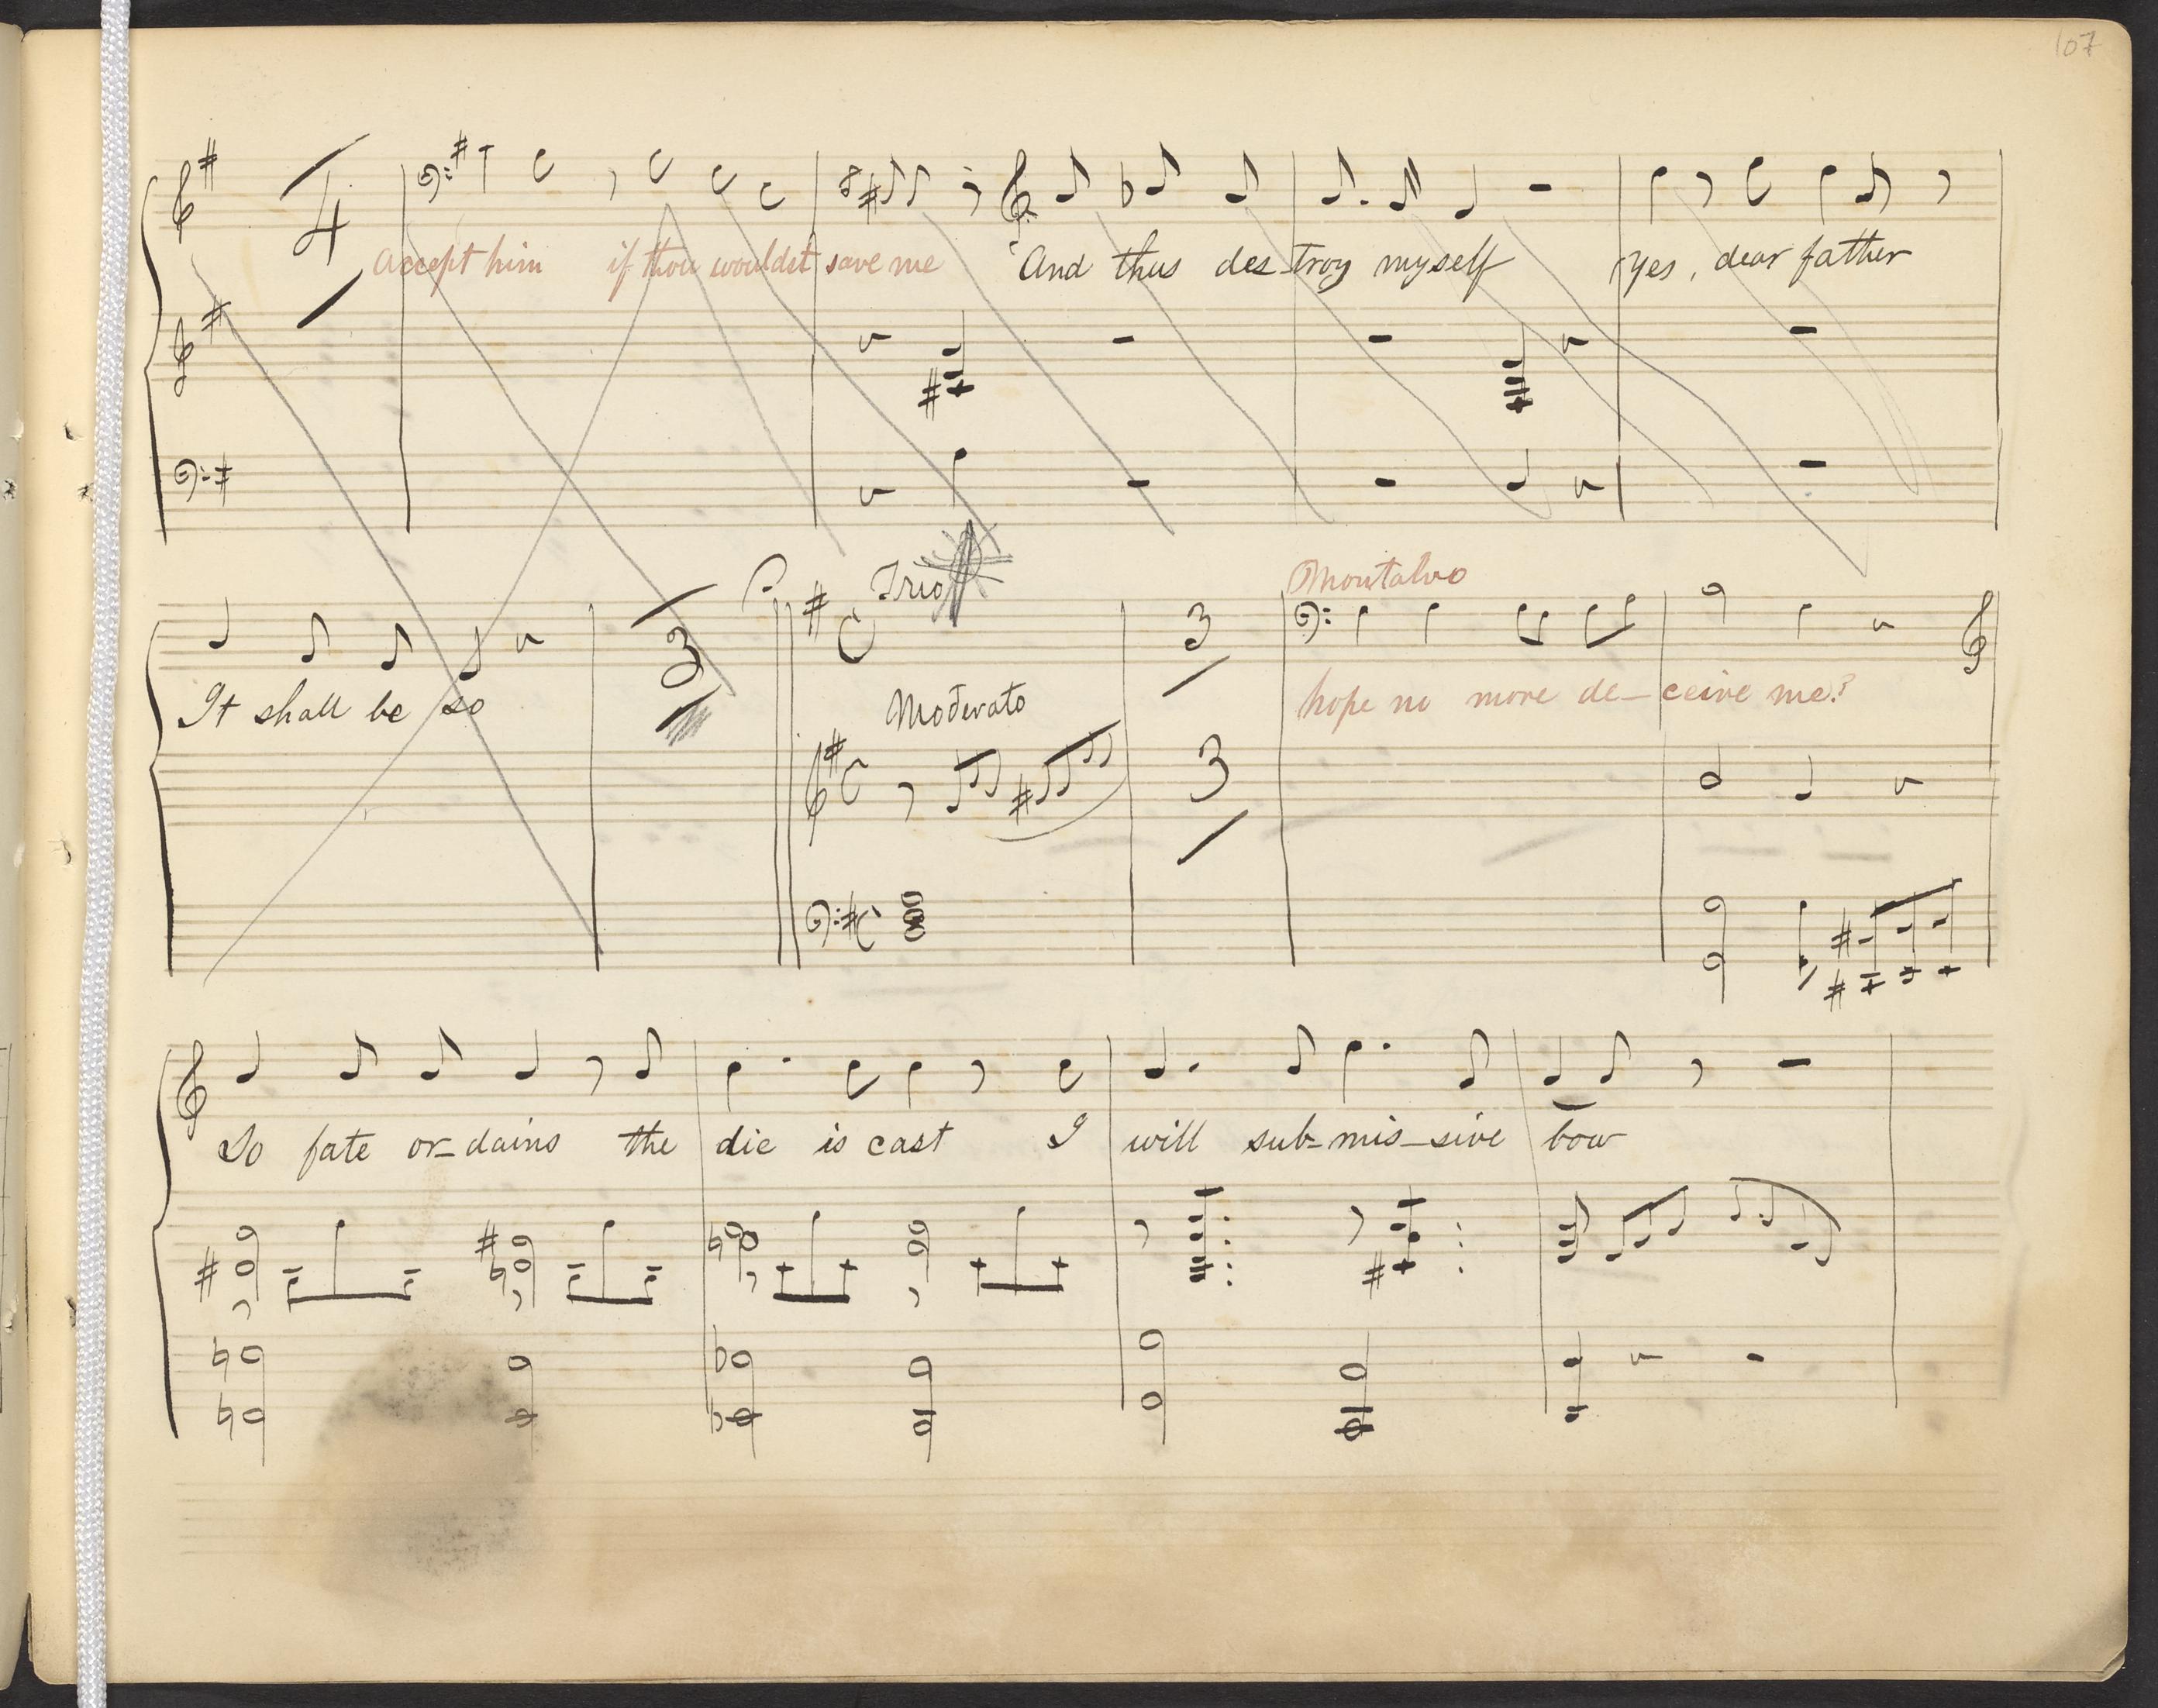 107
4
accept him if thou wouldst save me And thus des-troy myself yes, dear father
Trio
Montalvo
3 3
It shall be so hope no more de-ceive me?
Moderato
3
So fate or-dains the die is cast I will sub-mis-sive bow